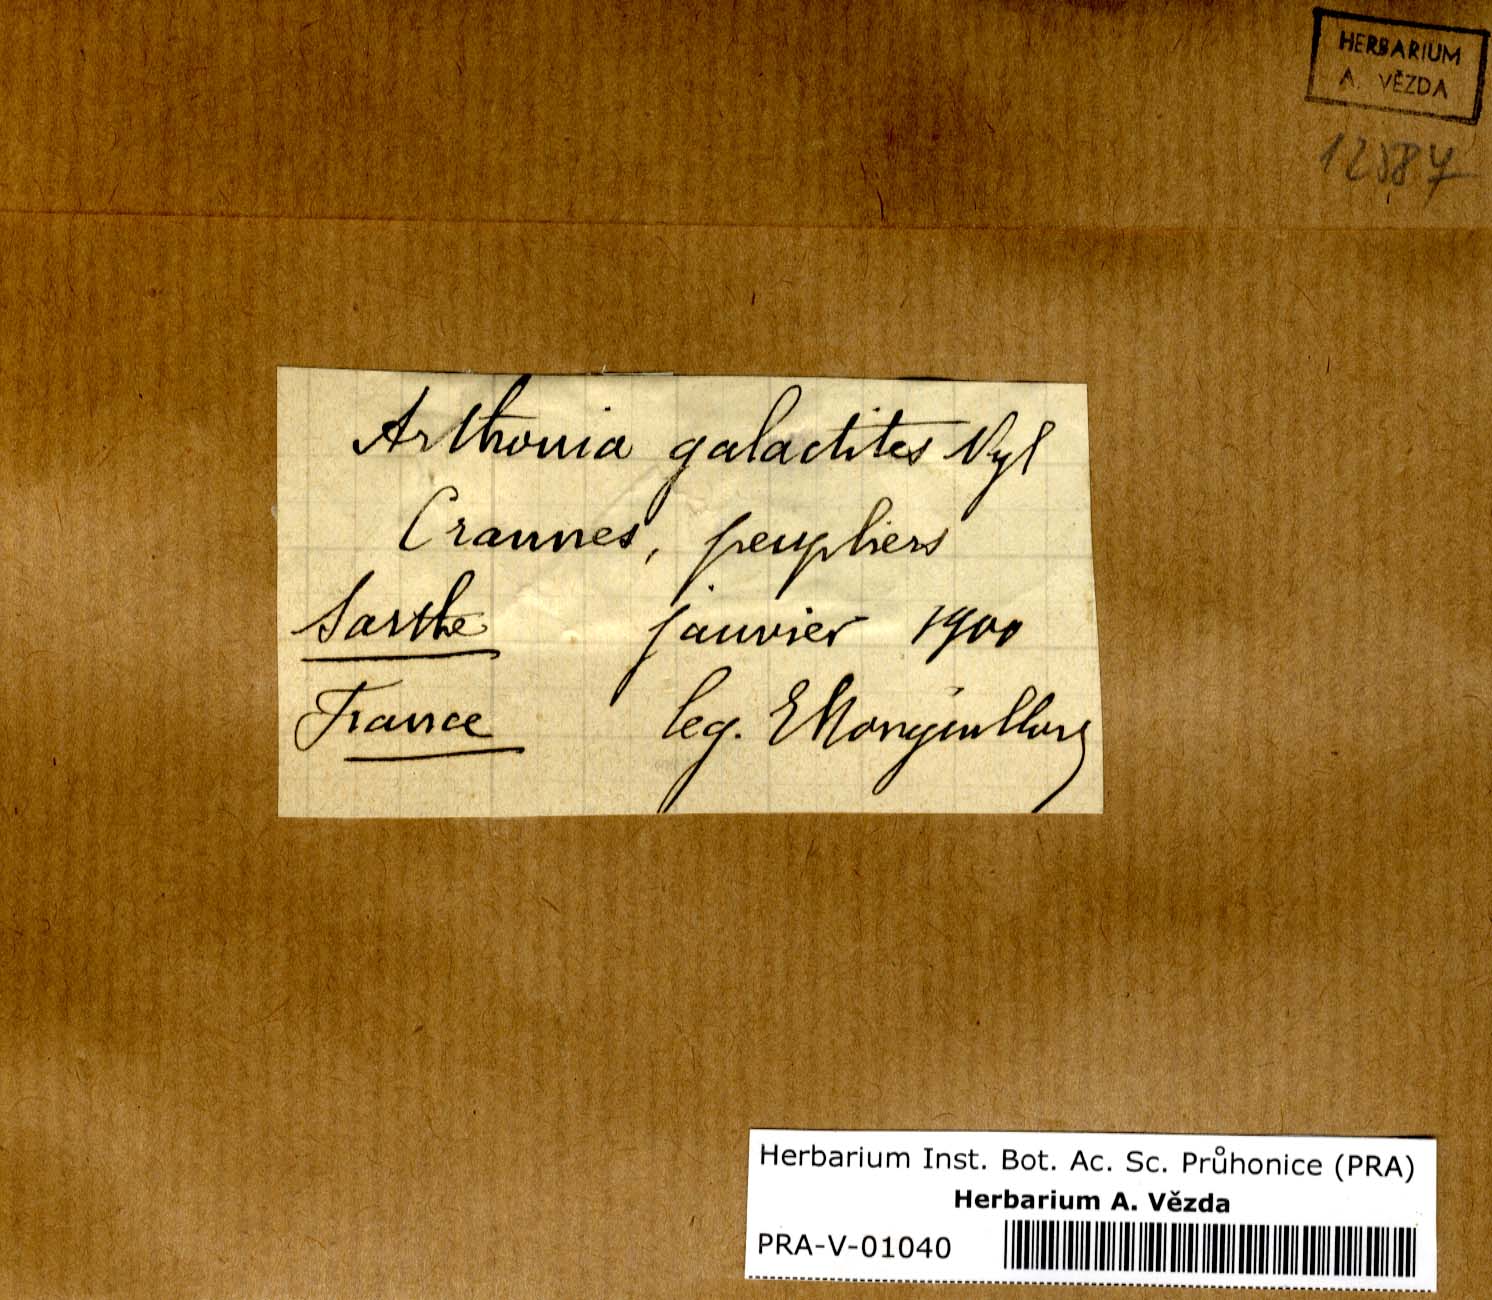 HERBARIUM
A. VĚZDA
12587
Arthonia galactites Nyl
Crannes, peupliers
Sarthe janvier 1900
France leg. E Monguillon
Herbarium Inst. Bot. Ac. Sc. Průhonice (PRA)
Herbarium A. Vězda
PRA-V-01040